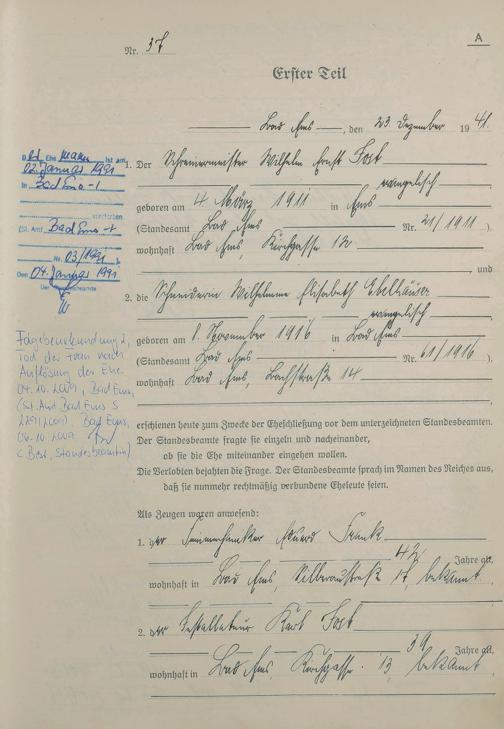 Nr. 37
A
Erster Teil
Bad Ems, den 23 Dezember 1941.
1. Der Schreinermeister Wilhelm Ernst Jost
evangelisch
geboren am 4 März 1911 in Ems
(Standesamt Bad Ems Nr. 21/1911)
wohnhaft Bad Ems, Kirchgasse 12
und
2. die Schneiderin Wilhelmine Elisabeth
evangelisch
geboren am 8. November 1916 in Bad Ems
(Standesamt Bad Ems Nr. 61/1916)
wohnhaft Bad Ems, Bachstraße 14
erschienen heute zum Zwecke der Eheschließung vor dem unterzeichneten Standesbeamten.
Der Standesbeamte fragte sie einzeln und nacheinander,
ob sie die Ehe miteinander eingehen wollen.
Die Verlobten bejahten die Frage. Der Standesbeamte sprach im Namen des Reiches aus,
daß sie nunmehr rechtmäßig verbundene Eheleute seien.
Als Zeugen waren anwesend:
1. der Frank
42 Jahre alt,
wohnhaft in Bad Ems, Silberaustraße 17, bekannt,
2. der Installateur Karl Jost
39 Jahre alt,
wohnhaft in Bad Ems, Kirchgasse 13 bekannt
D Ehemann ist am
02. Januar 1991
in Bad Ems
verstorben
(St. Amt Bad Ems
Nr. 03/1991)
Den 04. Januar 1991
Der Standesbeamte
Folgebeurkundung 2,
Tod der Frau nach
Auflösung der Ehe
04.10.2009, Bad Ems,
(St. Amt Bad Ems S
/2009), Bad Ems,
06.10.2009
Standesbeamtin)